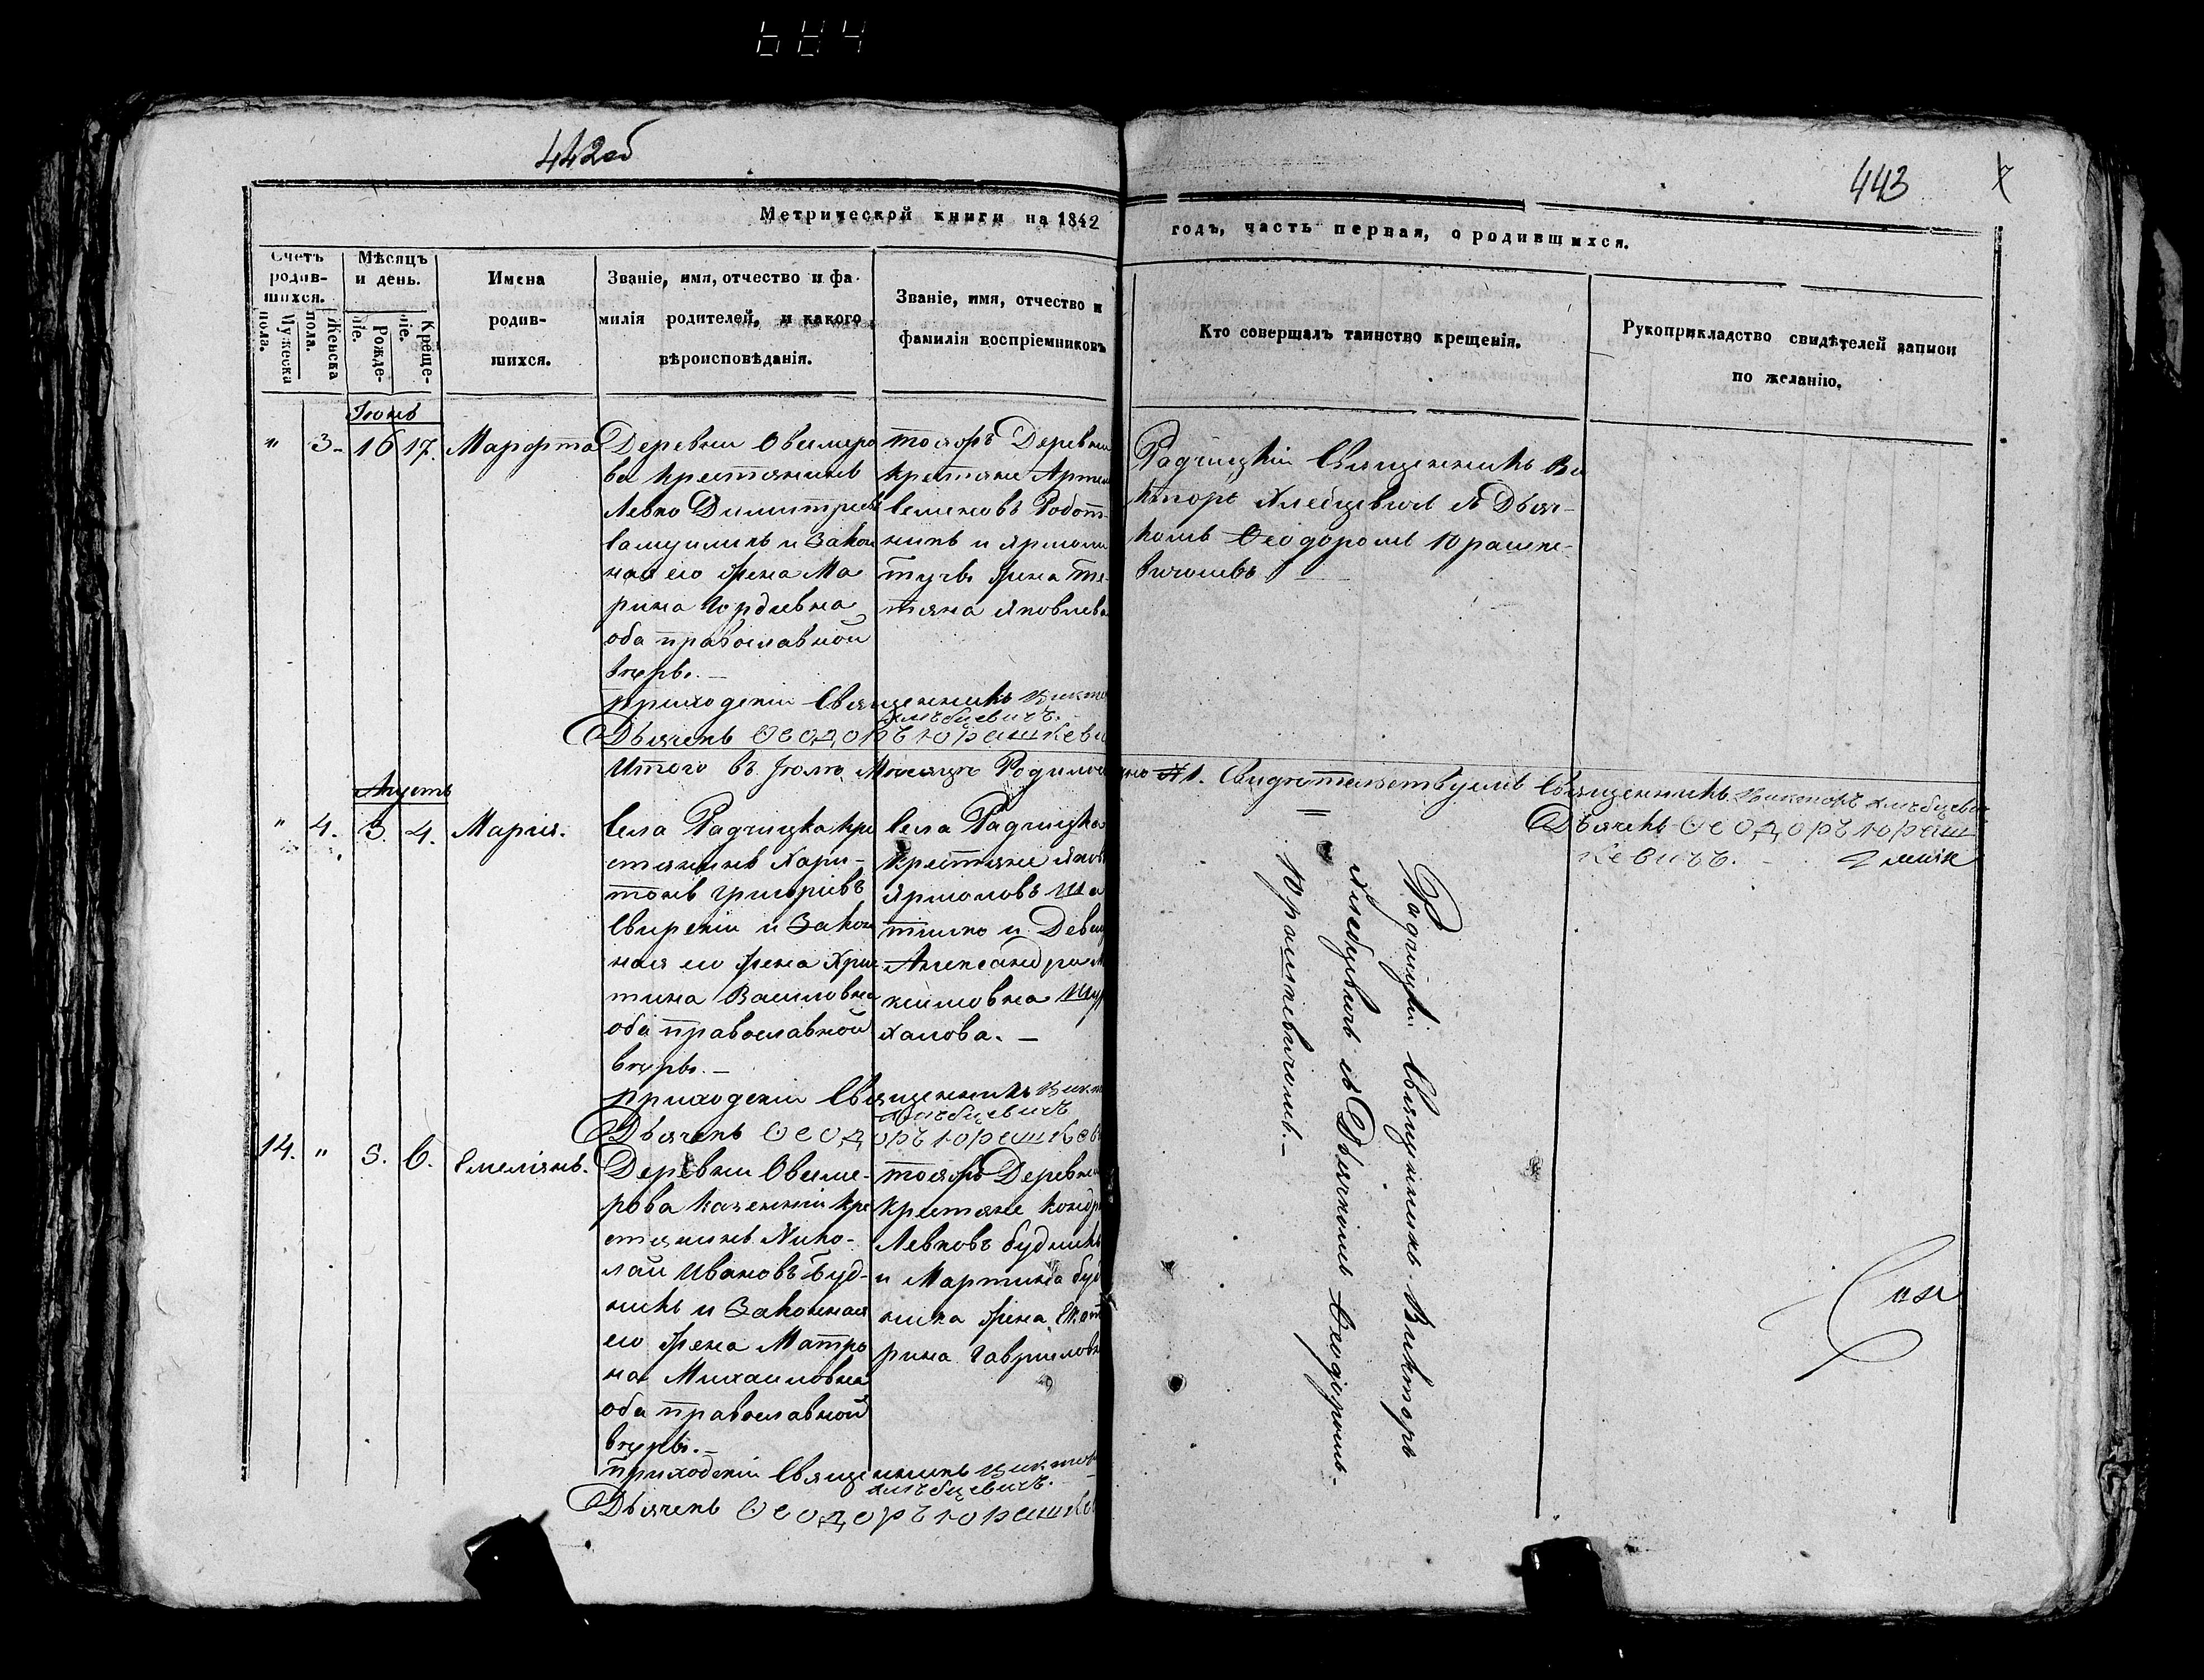 684
442об
443
Метрической книги на 1842
годъ, часть первая, о родившихся.
Счетъ родив-шихся.
Мужеска пола.
Женска пола.
Мѣсяцъ и день.
Рожде-ніе.
Креще-ніе.
Имена
родив-
шихся.
Званіе, имя, отчество и фа-
милія родителей, и какого
вѣроисповѣданія.
Званіе, имя, отчество и
фамилія воспріемниковъ
Кто совершалъ таинство крещенія.
Рукоприкладство свидѣтелей записи
по желанію.
" 3. 16 17.
Деревни
ва крестянинъ
Левко Димитріевъ
и Закон
ная его жена Ма
рина Гордѣевна
оба православной
вѣры.
тояжъ Деревни
крестяне
и
жена Та-
тяна Яковлева
Радчицкій Священникъ Ви
кторъ Хлебцевичъ съ Дьяч-
комъ Ѳеодоромъ Юрашке-
вичомъ
приходскій Священникъ Викто
Хлѣбцевичъ.
Дьячекъ Ѳеодоръ Юрашкеви
Итого въ Мѣсяцѣ Родилось
1. Свидѣтельствуемъ Священникъ Викторъ Хлѣбцеви
Дьячекъ Ѳеодоръ Юраш
кевичъ.
Августъ
" 4. 3. 4. Марія.
Села Радчицка кре
стянинъ Хари-
тонъ Григоріевъ
Свирскій и Закон
ная его жена Хрис
тина Василовна
оба православной
вѣры.
Села Радчицка
крестяне Яков
Ярмоловъ Ша
тило и Девиц
Александра М
симовна
ханова.
Радчицкій Священникъ Викторъ
Хлебцевичъ съ Дьячкомъ Ѳеодоромъ
Юрашкевичомъ.
приходскій Священникъ Викт
Хлѣбцевичъ
Дьячекъ Ѳеодоръ Юрашкев
14. " 5. 6. Емеліянъ.
Деревни
рова казенній кре
стянинъ Нико-
лай Ивановъ Буд-
никъ и Законная
его жена Матро
на Михаиловна
оба православной
вѣры.
тояжъ Деревни
крестяне Кондр
Левковъ Будникъ
и Мартина Буд
ника жена Екате
рина Гавриловн
приходскій Священникъ Виктор
Хлѣбцевичъ.
Дьячекъ Ѳеодоръ Юрашкев